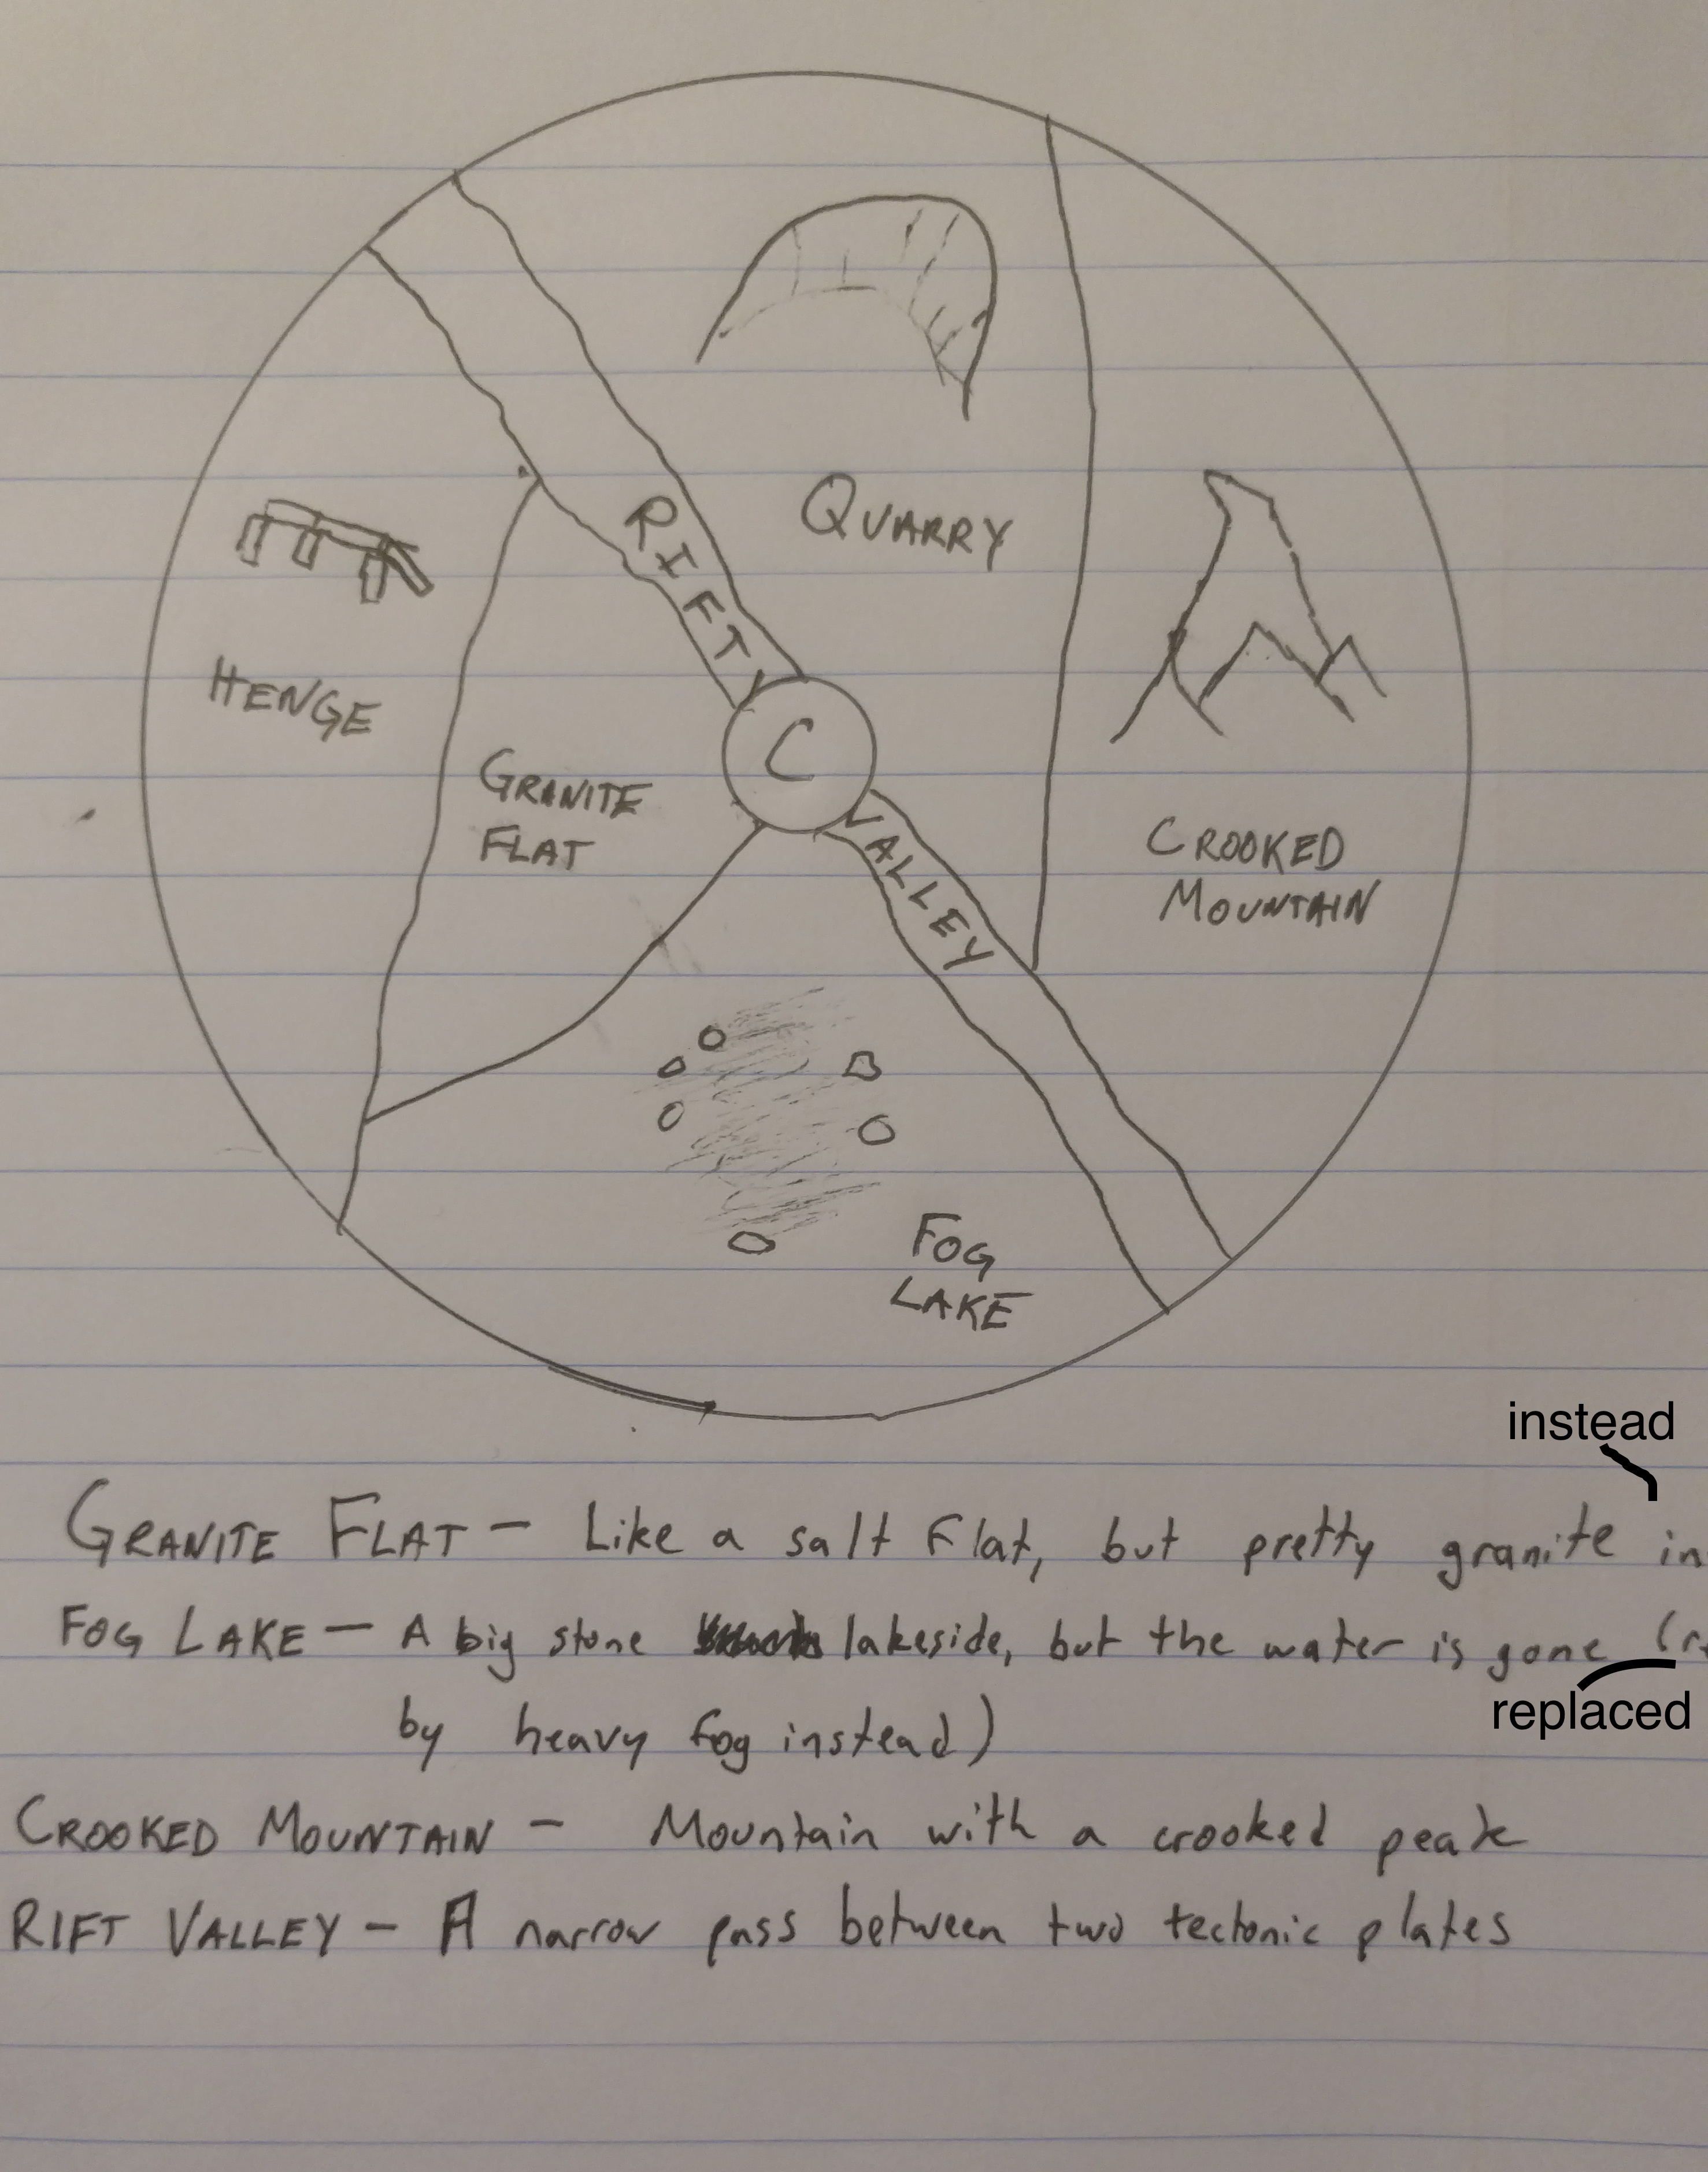 QUARRY
RIFT
HENGE
C
GRANITE
FLAT
VALLEY
CROOKED
MOUNTAIN
FOG
LAKE
instead
GRANITE FLAT - Like a salt flat, but pretty granite in
FOG LAKE - A big stone lakeside, but the water is gone (re
replaced
by heavy fog instead)
CROOKED MOUNTAIN - Mountain with a crooked peak
RIFT VALLEY - A narrow pass between two tectonic plates